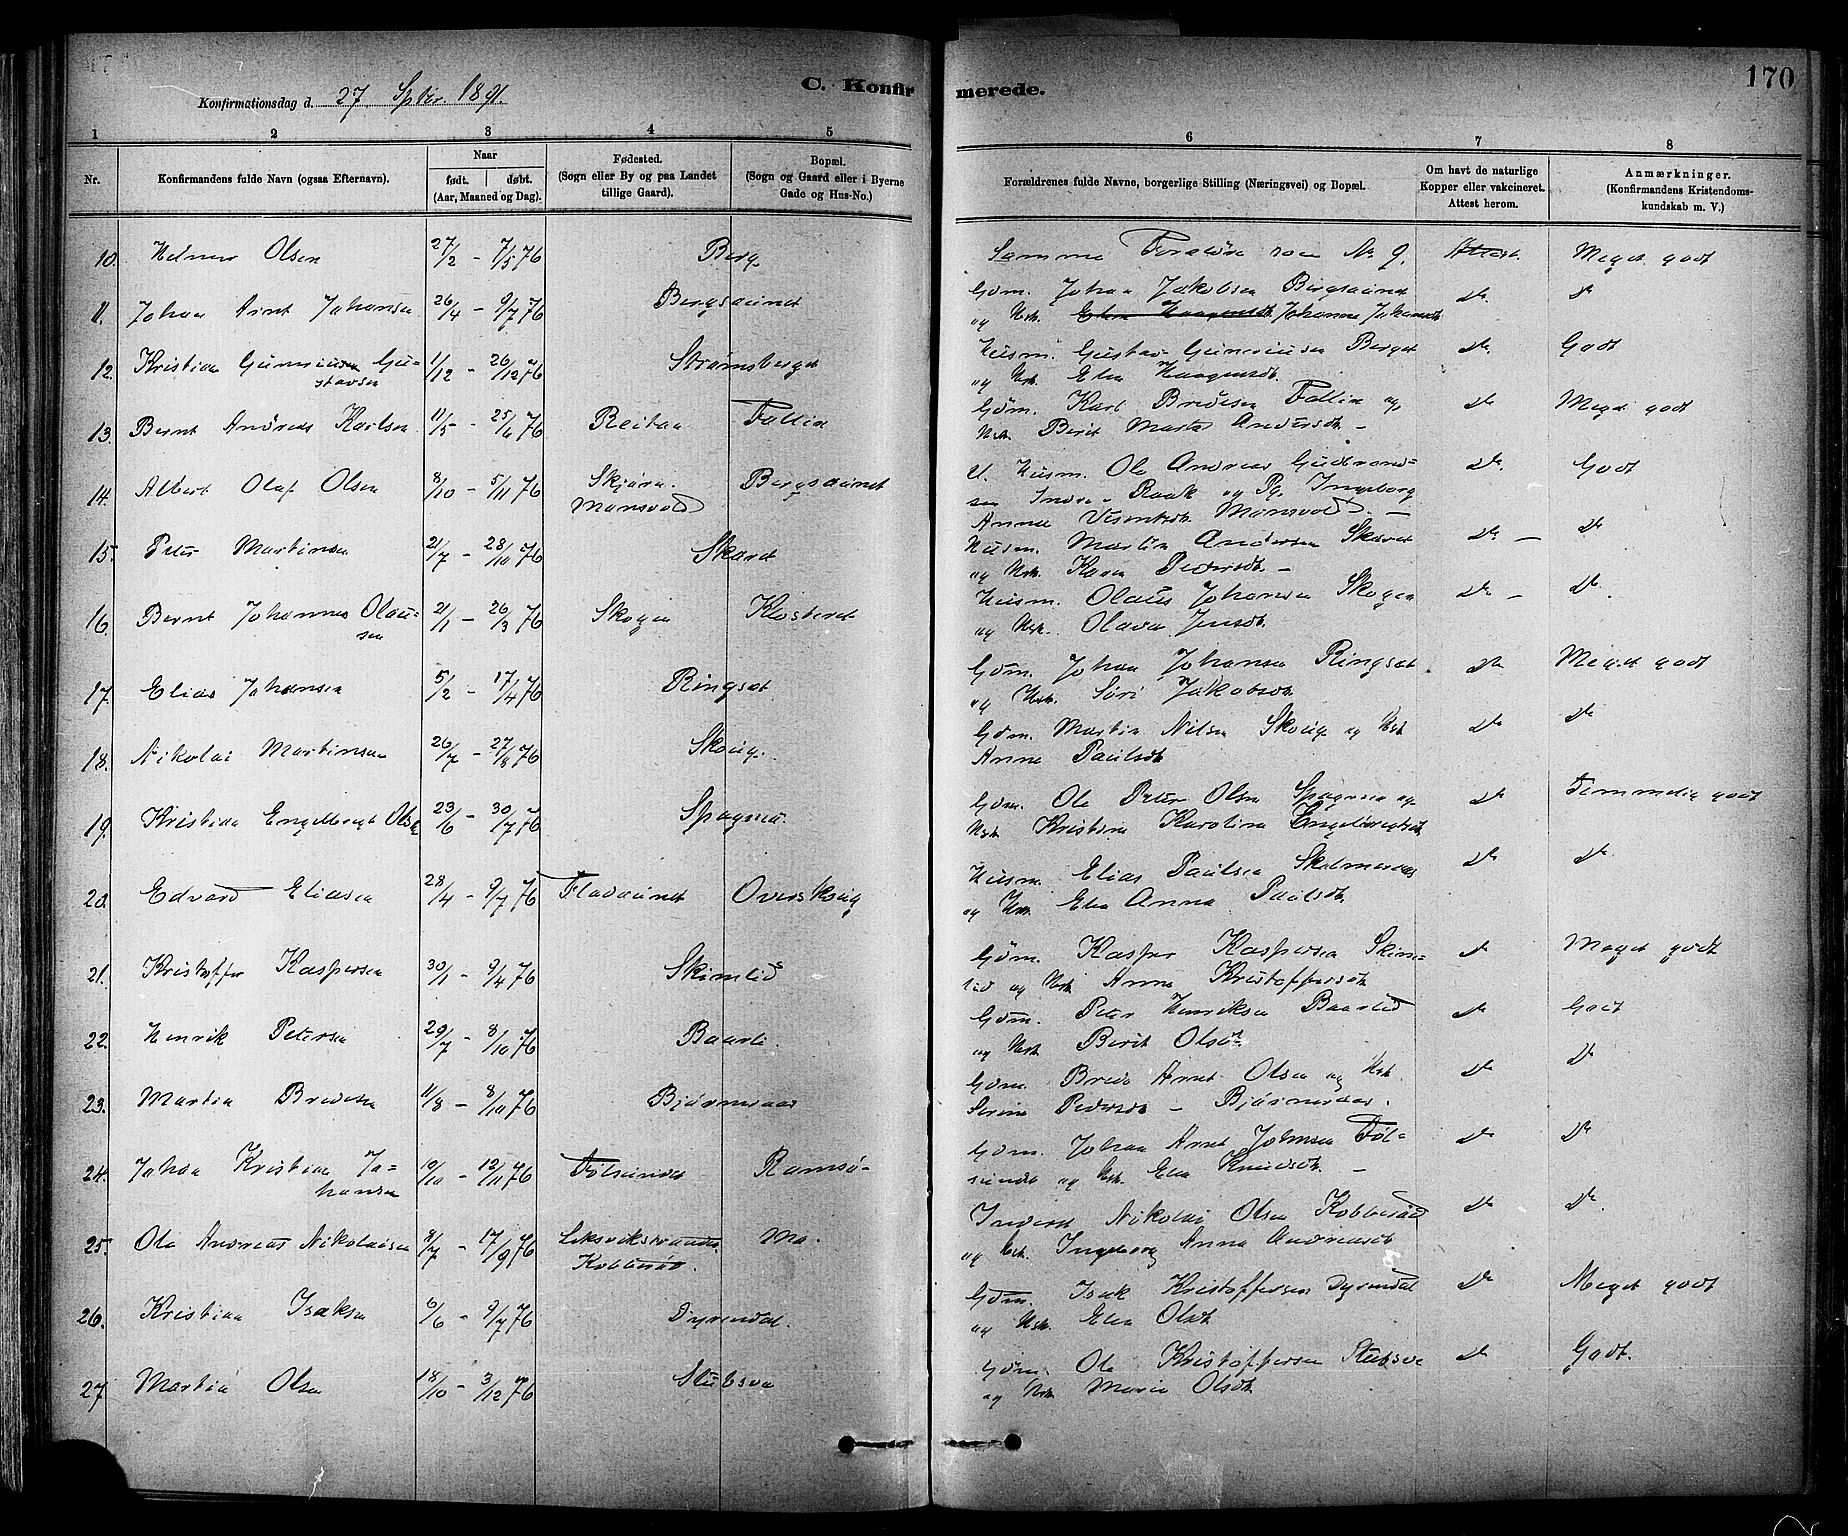 170
Konfirmationsdag d. 27 Sptbr. 1891.
C. Konfirmerede.
1 2 3 4 5 6 7 8
Nr. Konfirmandens fulde Navn (ogsaa Efternavn). Naar født. døbt. (Aar, Maaned og Dag). Fødested. (Sogn eller By og paa Landet tillige Gaard). Bopæl. (Sogn og Gaard eller i Byerne Gade og Hus-No.) Forældrenes fulde Navne, borgerlige Stilling (Næringsvei) og Bopæl. Om havt de naturlige Kopper eller vakcineret. Attest herom. Anmærkninger. (Konfirmandens Kristendomskundskab m. V.)
10. Helmer Olsen 27/2 - 7/5 76 Berg Samme Forældre som No 9. Attest Meget godt
11. Johan Arnt Johansen 26/4 - 9/7 76 Bergsaunet Gdm. Johan Jakobsen Bergsaunet do. do
og Hst. Elen Haagensdt. Johanna Johansdt
12. Kristian Gunerius Gu- 1/12 - 26/12 76 Strømsberget Husm. Gustav Guneriusen Berget do. Godt
stavsen og Hst. Elen Haagensdt.
13. Bernt Andreas Karlsen 11/5 - 25/6 76 Reitan Follin Gdm. Karl Bredesen Follin og do Meget godt
Hst. Berit Marta Andersdt. -
14. Albert Olaf Olsen 8/10 - 5/11 76 Skjørn. Bergsaunet U. Husm. Ole Andreas Gudbrand- do. Godt
Mansvold sen Indre-Raak og Pg. Ingeborg
Anna Mansvold. -
15. Peter Martinsen 21/7 - 28/10 76 Skaret Husm. Martin Andersen Skaret do - do
og Hst. Karen Pedersdt. -
16. Bernt Johannes Olau- 21/1 - 26/3 76 Skogen Klosteret Husm. Olaus Johansen Skogen do - do.
sen og Hst. Olava Jensdt.
17. Elias Johansen 5/2 - 17/4 76 Ringset Gdm. Johan Johansen Ringset do Meget godt
og Hst. Siri Jakobsdt.
18. Nikolai Martinsen 26/7 - 27/8 76 Skoug. Gdm. Martin Nilsen Skoug og Hst do do
Anne Paulsdt
19. Kristian Engelbregt Olsen 23/6 - 30/7 76 Spagmo. Gdm. Ole Peter Olsen og do Temmelig godt
Hst. Kristine Karoline Engelbregtsdt.
20. Edvard Eliasen 28/4 - 9/7 76 Fladaunet Overskoug Husm. Elias Paulsen do do.
og Hst. Elen Anna Paulsdt.
21. Kristoffer Kaspersen 30/1 - 9/4 76 Skimlid Gdm. Kasper Kaspersen Skim- do Meget godt
lid og Hst. Anne Kristoffersdt.
22. Henrik Petersen 29/7 - 8/10 76 Baarli. Gdm. Peter Henriksen Baarlid do Godt
og Hst. Berit Olsdt.
23. Martin Bredesen 11/8 - 8/10 76 Bjørneraas Gdm. Brede Arnt Olsen og Hst. do do
Serine Pedersdt - Bjørneraas.
24. Johan Kristian Jo- 10/10 - 12/11 76 Følsundet Ramsø- Gdm. Johan Arnt Johnsen Føl- do do
hansen sundet og Hst. Elen Knudsdt. -
25. Ole Andreas Nikolaisen 8/7 - 17/9 76 Leksvikstranden Mo. Inderst Nikolai Olsen Kobberød do do.
Kobberød. og Hst. Ingeborg Anna Andreasdt
26. Kristian Isaksen 6/6 - 9/7 76 Dyrendal. Gdm. Isak Kristoffersen Dyrendal do Meget godt
og Hst. Elen Olsdt.
27. Martin Olsen 18/10 - 3/12 76 Stubsve Gdm. Ole Kristoffersen Stubsve do Godt.
og Hst. Marie Olsdt.